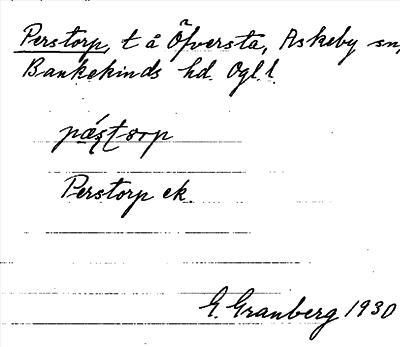 Perstorp, t å Öfversta, Askeby sn,
Bankekinds hd. Ogl. l.
pǽ̹ʂtorp
Perstorp ek.
G. Granberg 1930